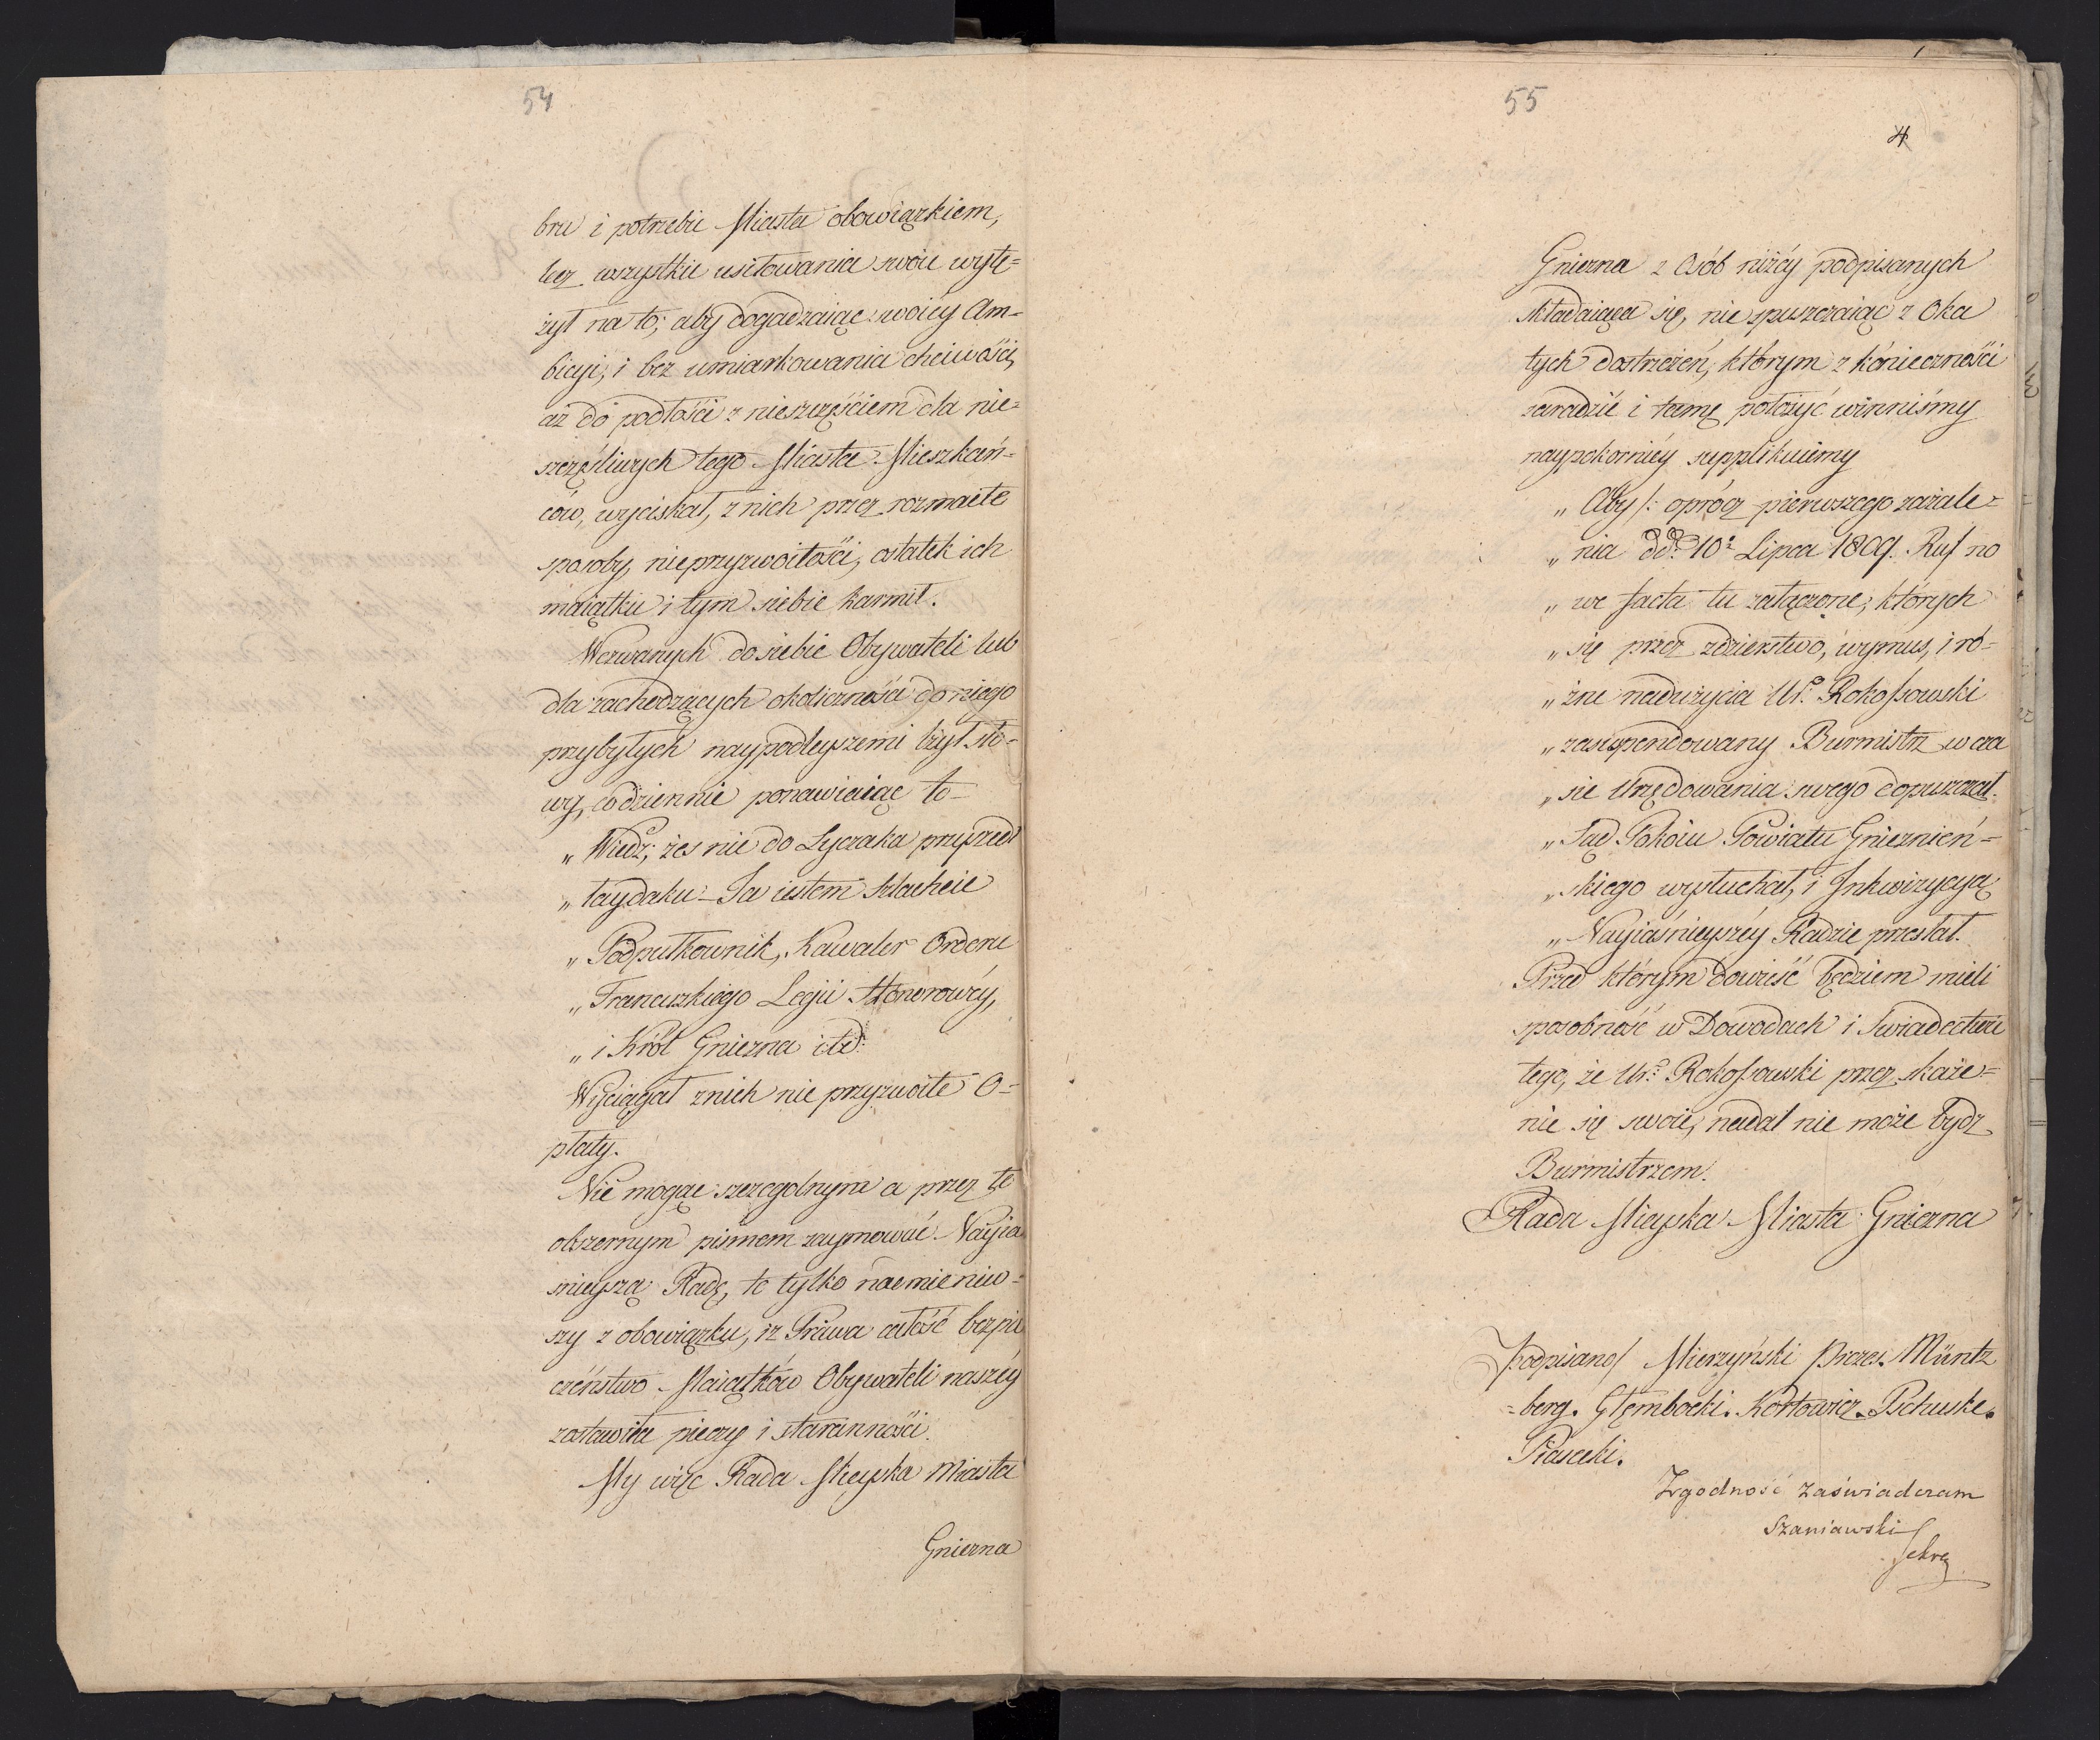 54
bru i potrzebie Miasta obowiązkiem,
lecz wszystkie usiłowania swoie wytę=
żył na to; aby dogadzaiąc swoiéy Am=
bicyi, i bez umiarkowania chciwości,
aż do podłości z nieszczęściem dla nie=
szczęśliwych tego Miasta Mieszkań=
ców, wyciskał, z nich przez rozmaite
sposoby, nieprzyzwoitości, ostatek ich
maiątku i tym siebie karmił.
Wezwanych do siebie Obywateli lub
dla zachodzących okoliczności do niego
przybyłych naypodleyszemi lżył sło=
wy, codziennie ponawiaiąc to—
„ Wiedz; żeś nie do Łyczaka przyszedł
„ łaydaku — Ja iestem Szlachcic
„ Podpułkownik, Kawaler Orderu
„ Francuzkiego Legii Honorowéy,
„ i Król Gniezna itd:
Wyciągał z nich nie przyzwoite O=
płaty.
Nie mogąc szczegolnym a przez to
obszernym pismem zaymować Nayia
śnieyszą Radę, to tylko nadmieniw=
szy z obowiązku, iż Prawa całość bezpie
czeństwo Maiątków Obywateli naszéy
zostawiła pieczy i staranności.
My więc Rada Mieyska Miasta
Gniezna
55
4
Gniezna z Osób niżéy podpisanych
składaiąca się, nie spuszczaiąc z Oka
tych dostrzeżeń, którym z konieczności
zaradzić i tamę położyć winniśmy
naypokorniéy supplikuiemy
„ Aby /: oprócz pierwszego zażale=
„ nia dd: 10: Lipca 1809. Rus no
„ we facta tu załączone, których
„ się przez zdzierstwo, wymus, i ró=
„ żne nadużycia Ur: Rokossowski
„ zasuspendowany Burmistrz w cza
„ sie Urzędowania swego dopuszczał.
„ Sąd Pokoiu Powiatu Gnieznień=
„ skiego wysłuchał, i Inkwizycyą
„ Nayiaśnieyszéy Radzie przesłał.
Przed którym dowieść będziem mieli
sposobność w Dowodach i Swiadectwie
tego, że Ur: Rokossowski przez skaże=
nie się swoie, nadal nie może bydz
Burmistrzem.
Rada Mieyska Miasta Gniezna
/podpisano/ Mierzyński Prezes. Müntz
=berg. Głęmbocki. Kortowicz. Pschuske.
Piasecki.
Zgodność zaświadczam
Szaniawski
Sekrz